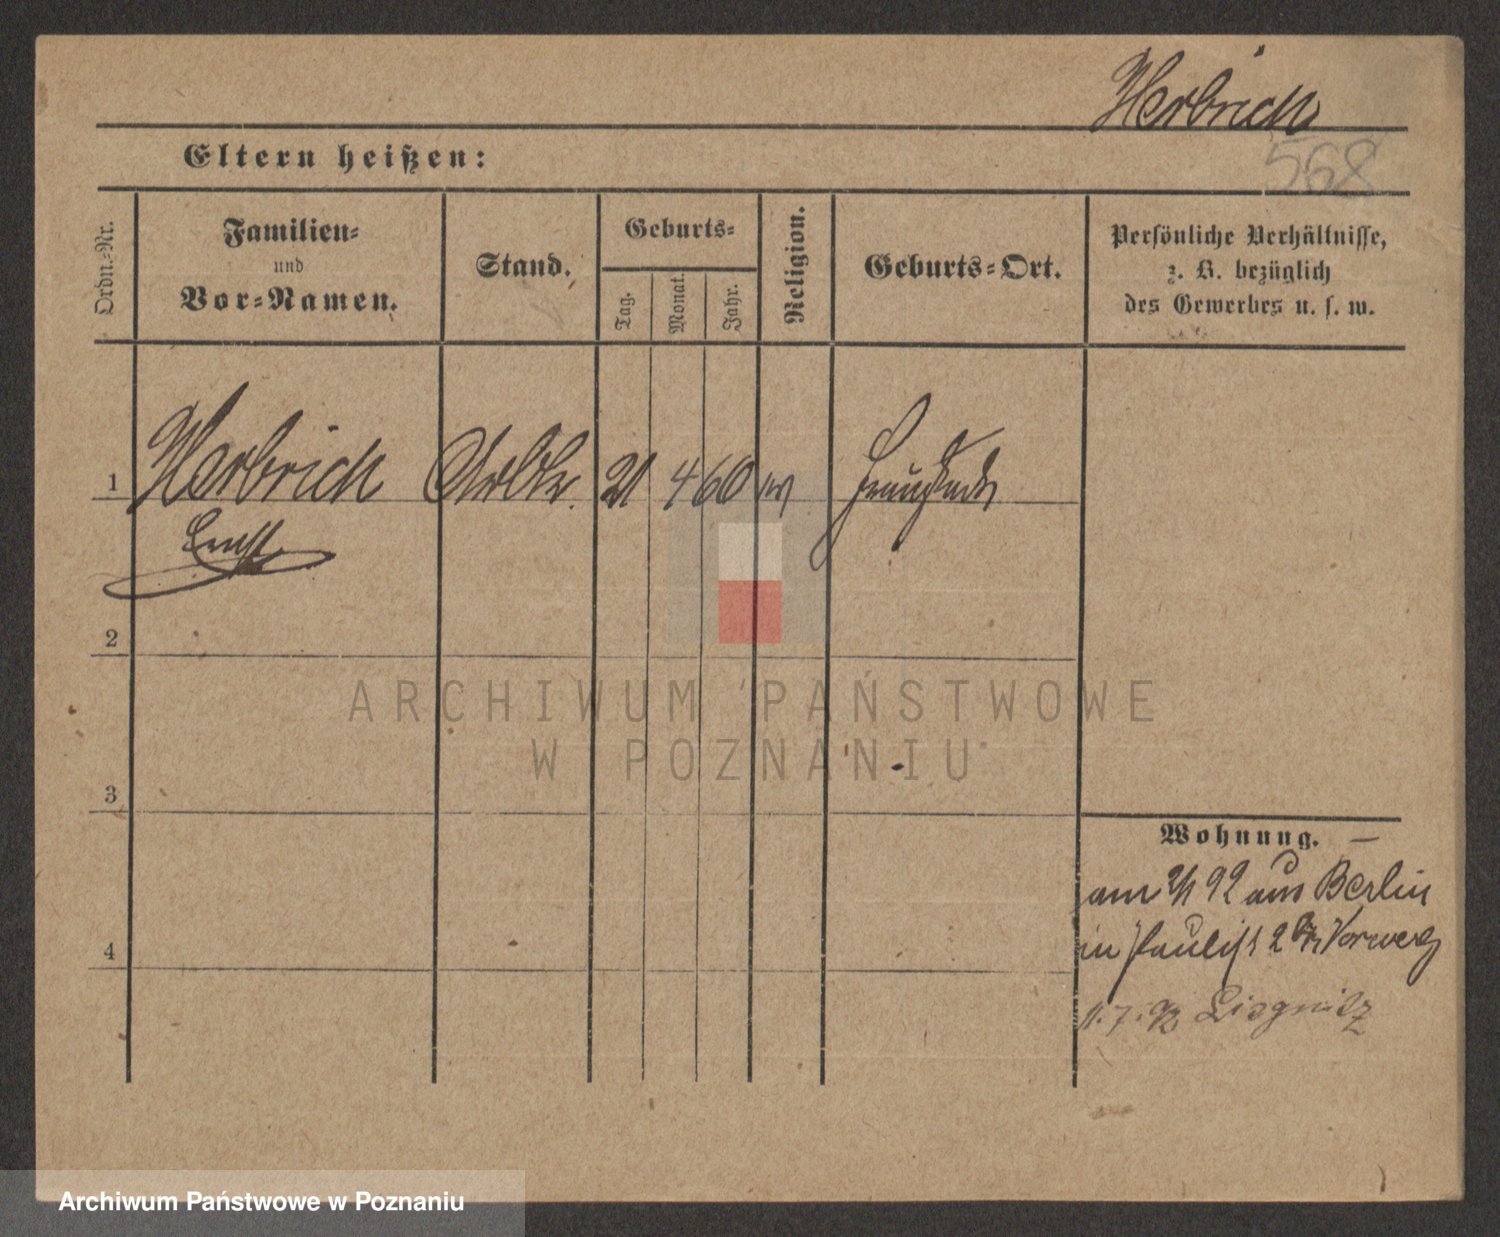 Herbrich
568
Eltern heißen:
Ordn.-Nr.
Familien-
und
Vor-Namen.
Stand.
Geburts-
Tag.
Monat.
Jahr.
Religion.
Geburts-Ort.
Persönliche Verhältnisse,
z. B. bezüglich
des Gewerbes u. s. w.
1 Herbrich 21 4 60 Fraustadt
Ernst
2
ARCHIWUM PAŃSTWOWE
W POZNANIU
3
Wohnung. —
am 2/1 92 aus Berlin
in Paulist 2 Vorwerg
11.7.92 Liegnitz
4
Archiwum Państwowe w Poznaniu